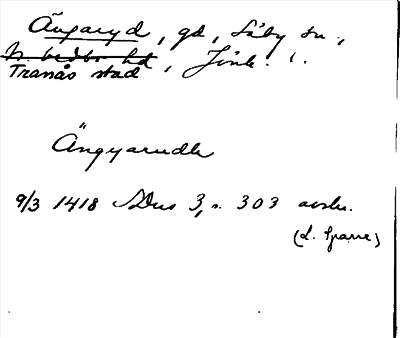 Ängaryd, gd, Säby sn.,
N. Vedbo hd
Tranås stad, Jönk. l.
Ängyarudh
9/3 1418 SDns 3, s. 303 avskr.
(L. Sparre)